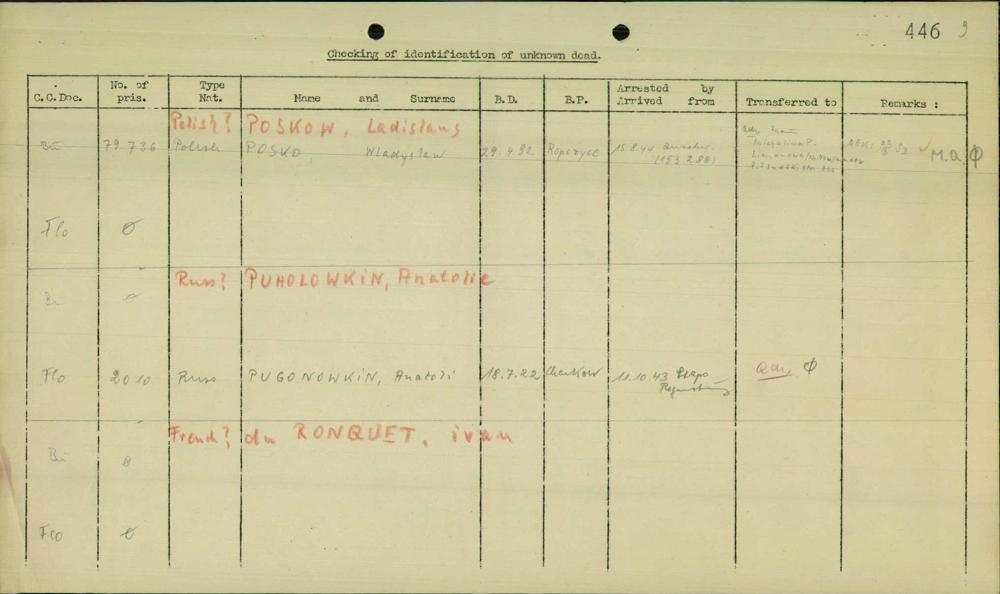 446 9
Checking of identification of unknown dead.
C.C.Doc. No. of pris. Type Nat. Name and Surname B.D. B.P. Arrested by Arrived from Transferred to Remarks :
Polish? POSKOW, Ladislaus
Bu 79.736 Polish POSKO, Wladyslaw 29.4.92 Ropczyce 15.8.44
M.a. ϕ
Flo ø
Russ? PUHOLOWKIN, Anatolie
Bu ø
Flo 2010 Russ PUGONOWKIN, Anatoli 18.7.22 Charkow 11.10.43 Stapo ϕ
French? du RONQUET, ivan
Bu ø
Flo ø